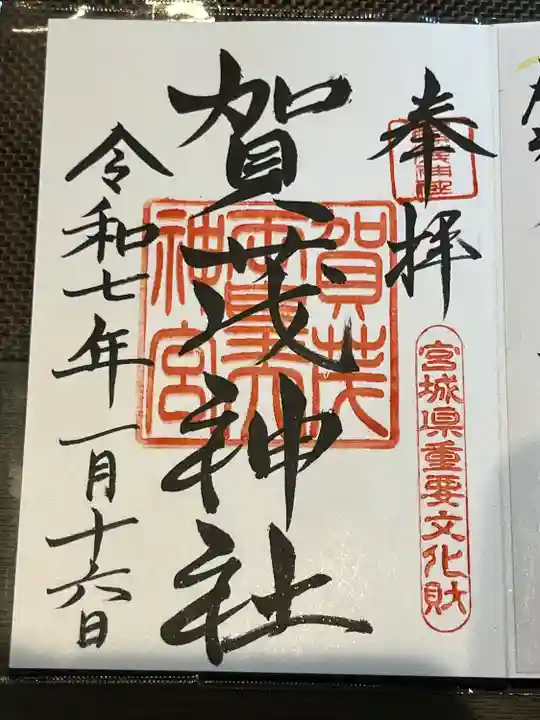 奉拝
宮城県重要文化財
賀茂神社
賀茂
神宮
令和七年一月十六日